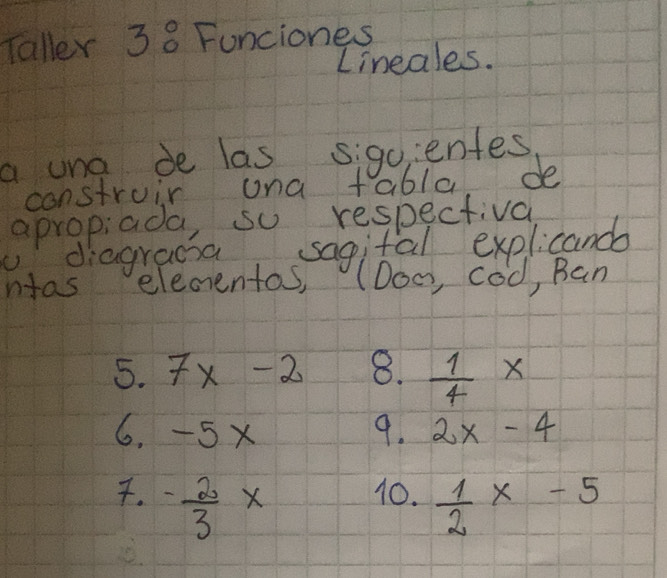 Taller 3: Funciones
Lineales.
a una de las siguientes
construir una tabla de
apropiada, su respectiva
u diagrama sagital explicando
ntas elementos, (Dom, Cod, Ran
5. 7x - 2 8. 1/4 x
6. -5x 9. 2x - 4
7. -2/3 x 10. 1/2 x - 5